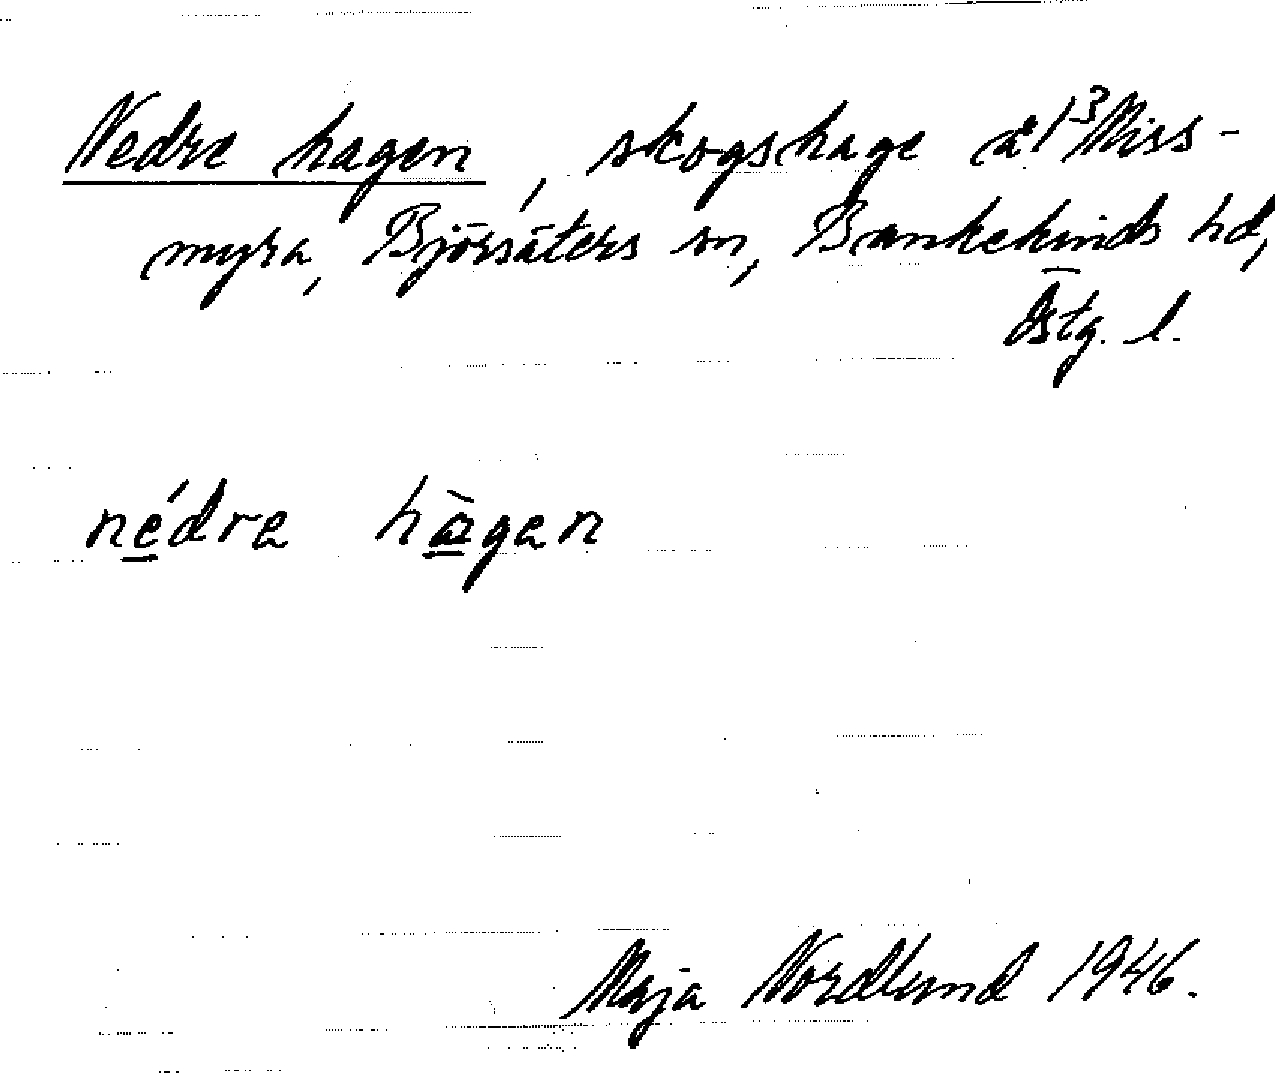 Nedre hagen, skogshage å 1³ Miss-
myra, Björsäters sn, Bankekinds hd,
Östg. l.
nédre hàgen
Maja Nordlund 1946.